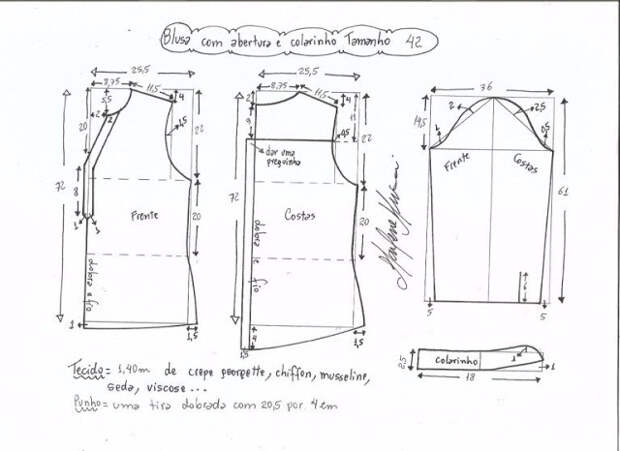 Blusa com abertura e colarinho Tamanho 42
25,5
8,75
11,5
4
5,5
2
2
20
1,5
22
72
8
20
1
1
Frente
dobra e fio
1
1,5
25,5
8,75
11,5
2
4
9
11
0,5
22
dar uma preguinha
72
20
Costas
dobra e fio
1,5
4
1,5
36
14,5
2
2,5
1
0,5
Frente
Costas
61
6
5
5
7,5
colarinho
1
1
1
18
Tecido = 1,40m de crepe georgette, chiffon, musseline,
seda, viscose ...
Punho = uma tira dobrada com 20,5 por 4 cm